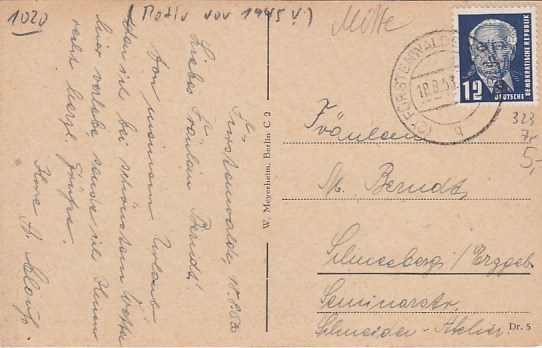 1020)
(Motiv vor 1945 V.)
Mitte
Fürstenwalde, 18.8.53
Liebes Fräulein Berndt!
Von meinem Urlaub
den ich bei schönstem Wetter
hier verlebe sende ich Ihnen
recht herzl. Grüße.
Ihre
W. Meyerheim, Berlin C 2
FÜRSTENWALDE
18.8.53
b
DEUTSCHE DEMOKRATISCHE REPUBLIK
12
323
5,-
Fräulein
M. Berndt
Schneeberg/Erzgeb
Seminarstr.
Schneider-Atelier.
Dr. 5